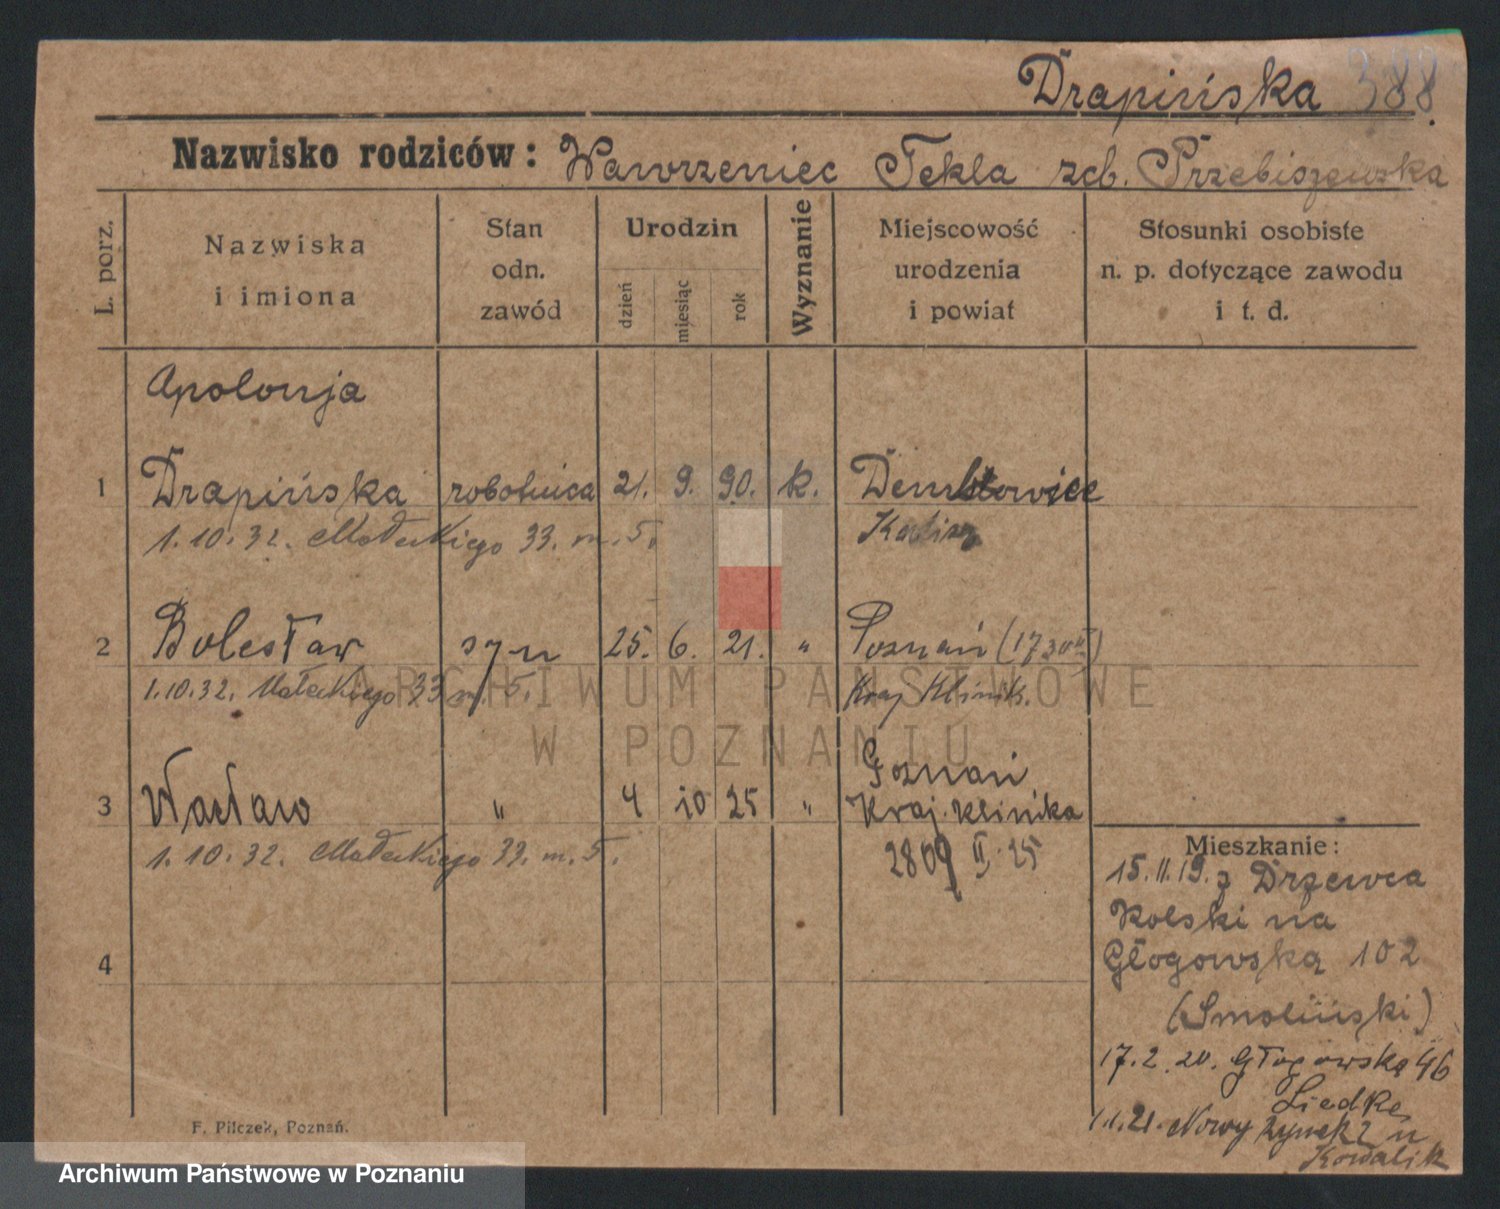 Drapińska 388
Nazwisko rodziców: Wawrzeniec Tekla zcb. Przebiszewska
L. porz.
Nazwiska
i imiona
Stan
odn.
zawód
Urodzin
dzień
miesiąc
rok
Wyznanie
Miejscowość
urodzenia
i powiat
Stosunki osobiste
n. p. dotyczące zawodu
i t. d.
Apolonja
1 Drapińska robotnica 21. 9. 90. k.
1.10.32. Małeckiego 33. m. 5.
2 Bolesław syn 25. 6. 21. „ Poznań (1730
1.10.32. Małeckiego 33 m. 5. Kraj Klinik.
Poznań
3 Wacław „ 4 10 25 „ Kraj. Klinika
1.10.32. Małeckiego 33. m. 5. 2809 II. 25
4
Mieszkanie:
15.11.19. z Drzewca
Kolski na
Głogowską 102
(Smoliński)
17.2.20. Głogowska 46
Liedke
1.1.21. Nowy Rynek 2 u
Kowalik
F. Pilczek, Poznań.
ARCHIWUM PAŃSTWOWE
W POZNANIU
Archiwum Państwowe w Poznaniu